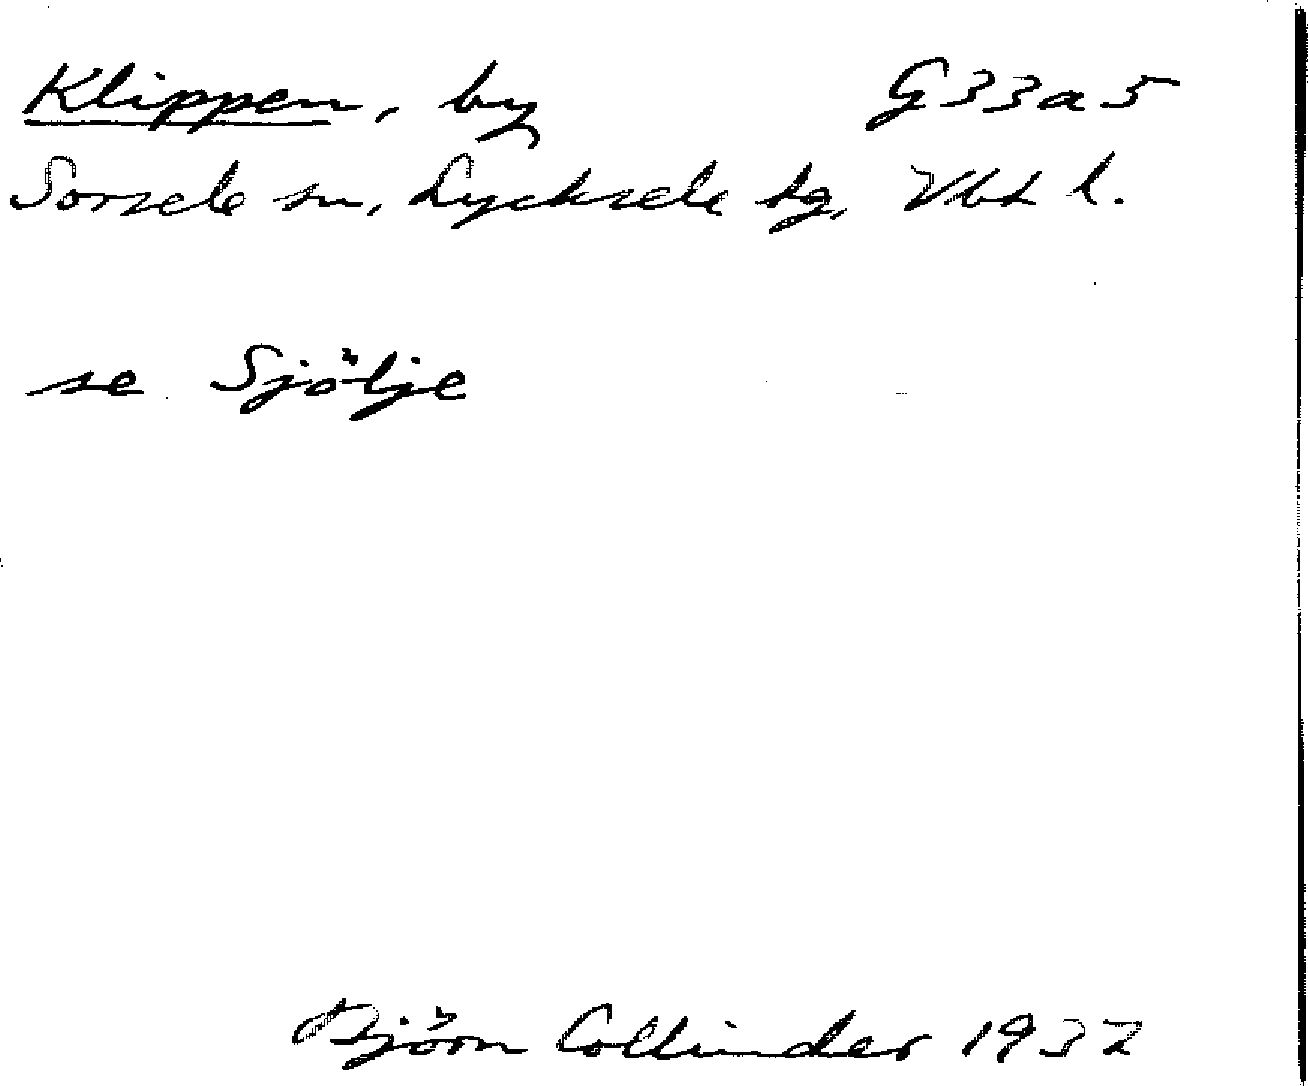 Klippen, by G33a5
Sorsele sn, Lycksele tg, Vbt l.
se Sjölje
Björn Collinder 1932